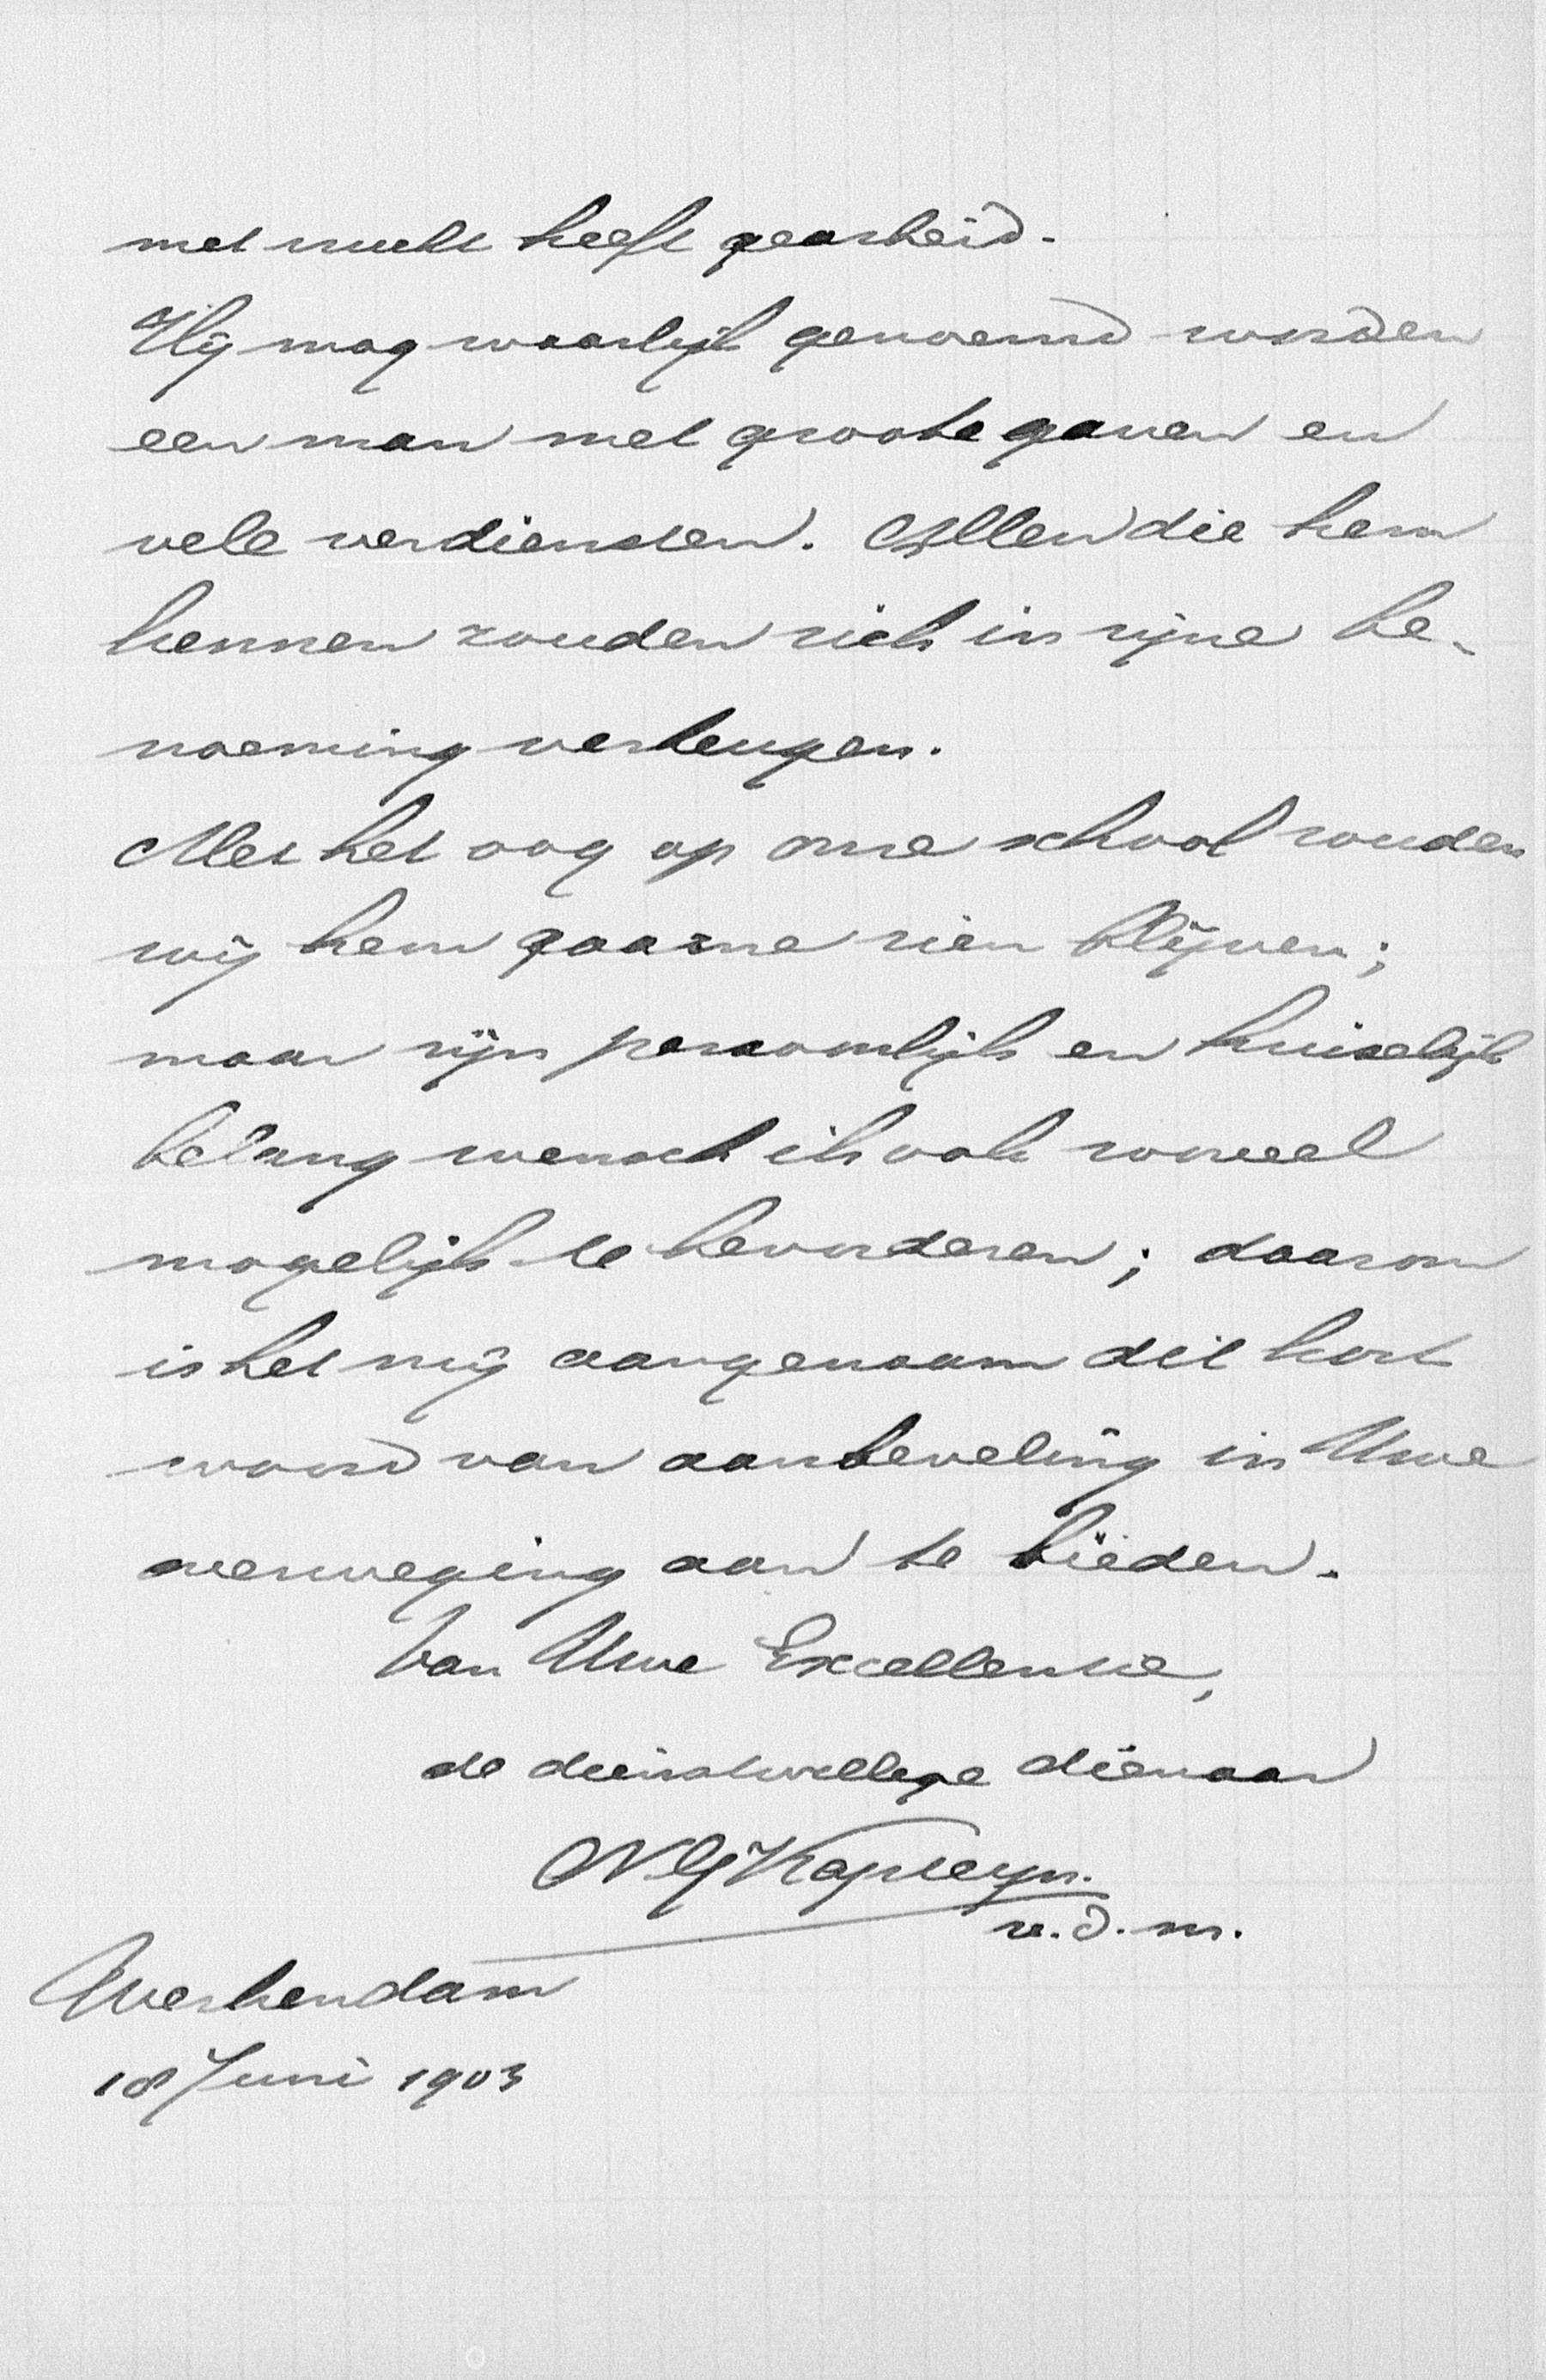 met vrucht heeft gearbeid.
Hij mag waarlijk genoemd worden
een man met groote gaven en
vele verdiensten. Allen die hem
kennen zouden zich in zijne be-
noeming verheugen.
Met het oog op onze school zouden
wij hem gaarne zien blijven;
maar zijn persoonlijk en huiselijk
belang wensch ik ook zooveel
mogelijk te bevorderen; daarom
is het mij aangenaam dit kort
woord van aanbeveling in Uwe
overweging aan te bieden.
Van Uwe Excellentie,
de dienstwillige dienaar
N G Kapteyn.
v. d. m.
Werkendam
18 Juni 1903